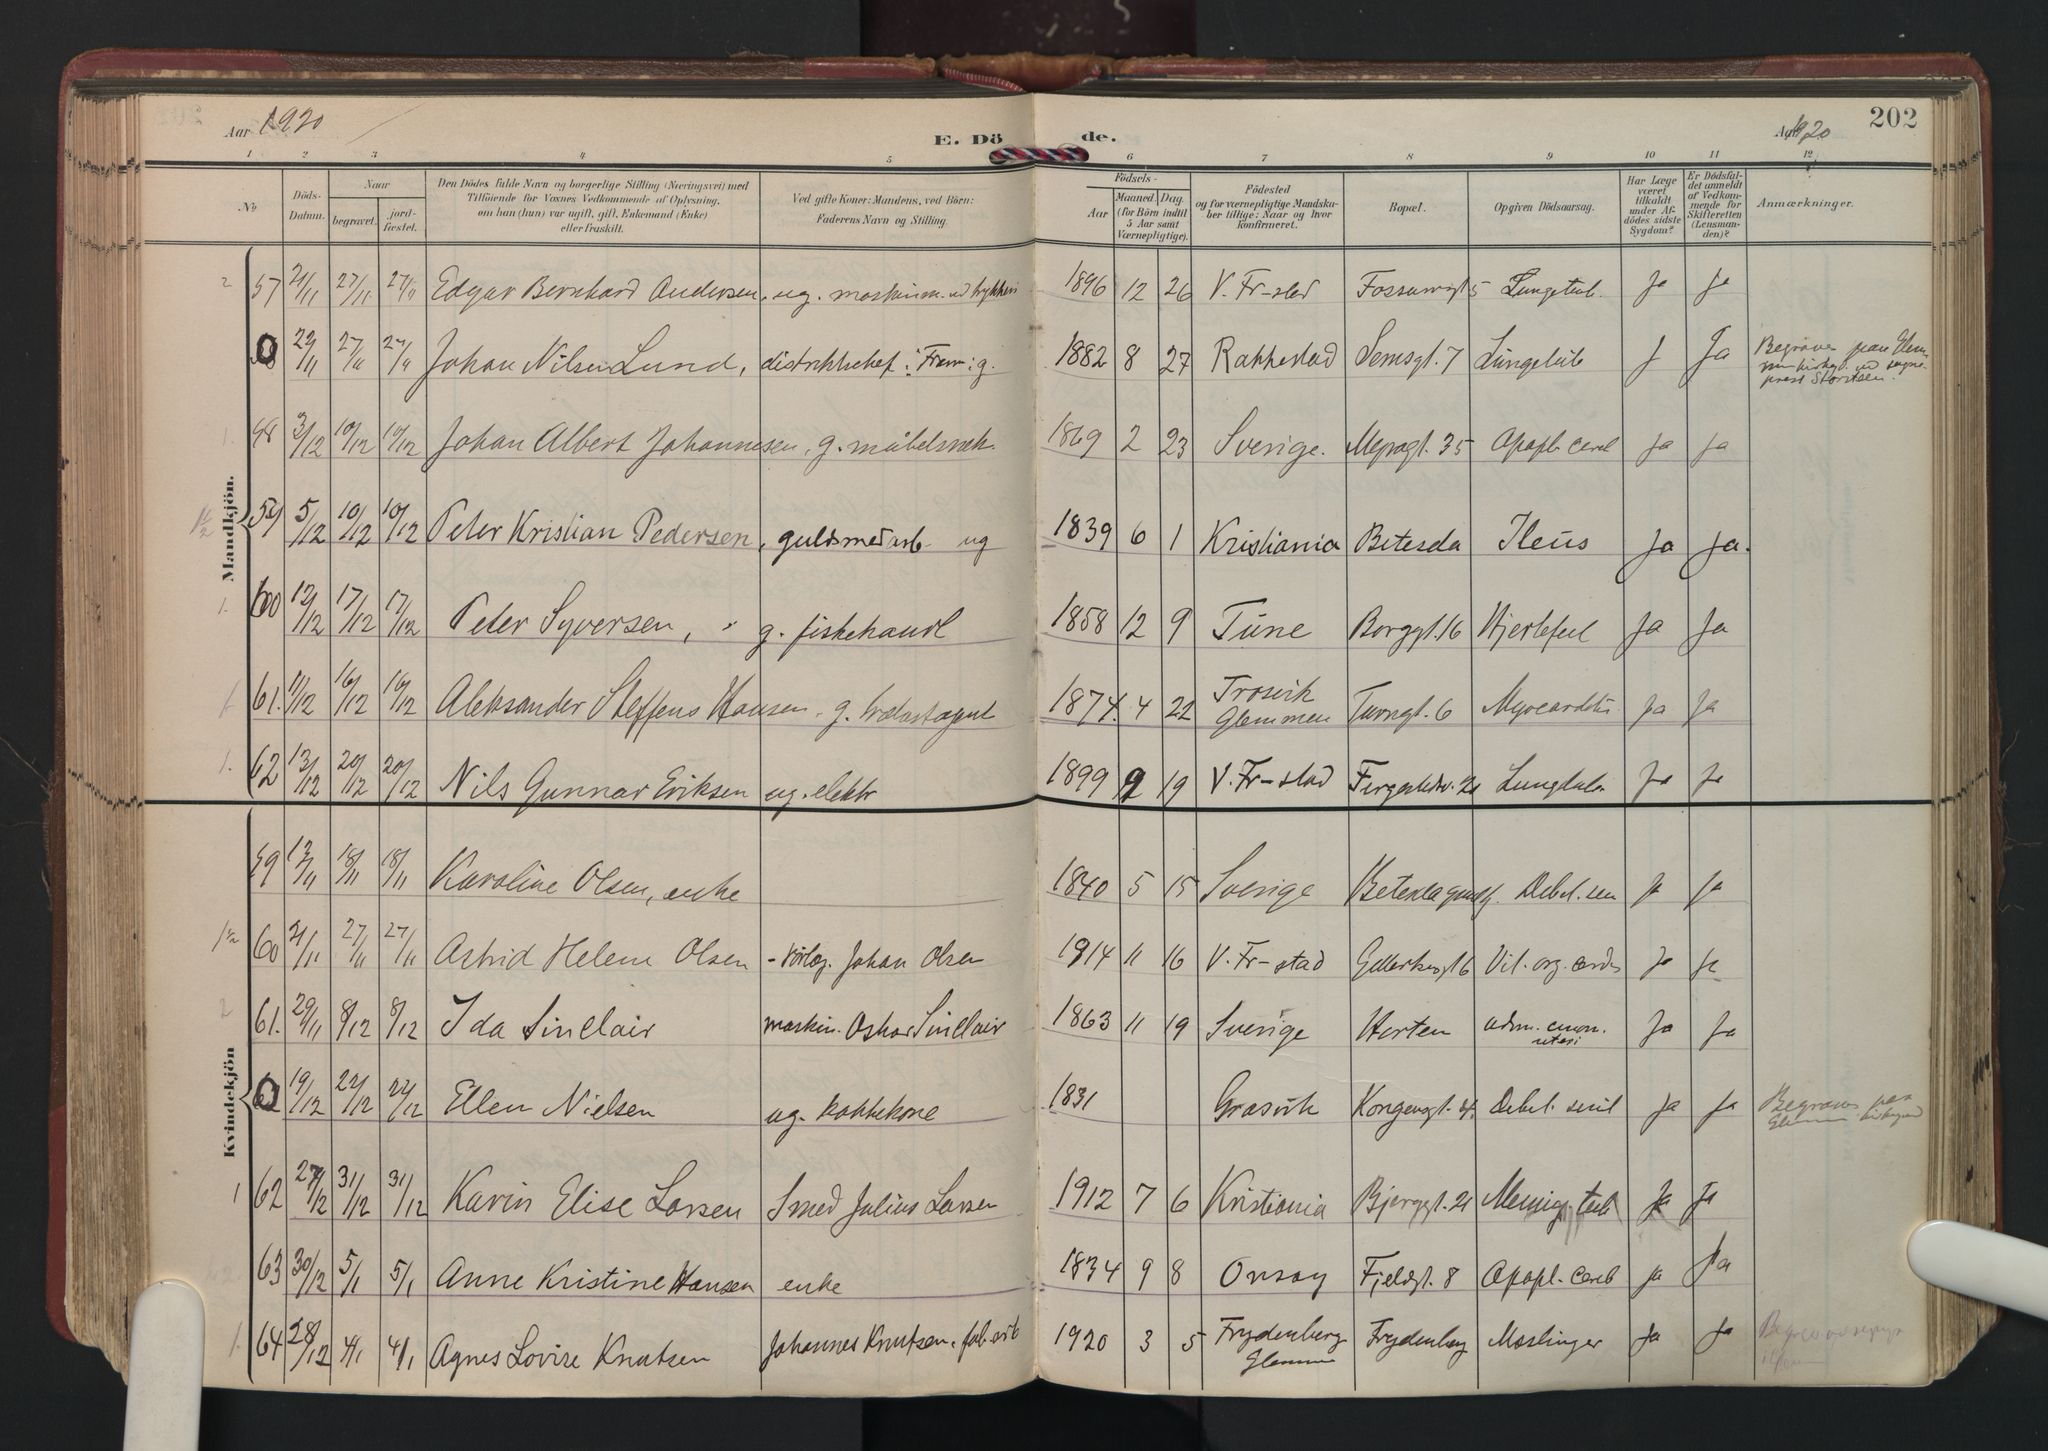 Aar 1920
E. Dö de.
Aar 1920
202
1 2 3 4 5 6 7 8 9 10 11 12
No
Döds-Datum.
Naar
begravet.
jord-fæstet.
Den Dödes fulde Navn og borgerlige Stilling (Næringsvei) med
Tilföiende for Voxnes Vedkommende af Oplysning,
om han (hun) var ugift, gift, Enkemand (Enke)
eller fraskilt.
Ved gifte Koner: Mandens, ved Börn:
Faderens Navn og Stilling.
Födsels-
Aar
Maaned. Dag.
(for Börn indtil
5 Aar samt
Værnepligtige).
Födested
og for værnepligtige Mandska-
ber tillige: Naar og hvor
konfirmeret.
Bopæl.
Opgiven Dödsaarsag.
Har Læge
været
tilkaldt
under Af-
dödes sidste
Sygdom?
Er Dödsfal-
det anmeldt
af Vedkom-
mende for
Skifteretten
(Lensman-
den)?
Anmærkninger.
Mandkjön.
2 57 21/11 27/11 27/11 Edgar Bernhard Andersen, ug. maskinm. ved trykkeri 1896 12 26 V. Fr-stad Fossumsgt 5 Lungetub. Ja Ja
0 22/11 27/11 27/11 Johan Nilsen Lund, distriktschef i "Fram" g. 1882 8 27 Rakkestad Semsgt. 7 Lungetub J Ja Begraves paa Glem-
prest Storsten.
1. 3/12 10/12 10/12 Johan Albert Johannesen, g. møbelsnek. 1869 2 23 Sverige. 35 Apopl. cereb Ja Ja
59 5/12 10/12 10/12 Peter Kristian Pedersen, guldsmedarb. ug 1839 6 1 Kristiania Betesda Ileus Ja Ja.
1. 60 12/12 17/12 17/12 Peter Syversen, g. fiskehandl 1858 12 9 Tune Borggt. 16 Hjertefeil Ja Ja
1 61. 11/12 16/12 16/12 Aleksander Steffens Hansen, g. trælastagent 1874. 4 22 Trosvik
Glemmen Turngt. 6 Myocarditis Ja Ja
1. 62 13/12 20/12 20/12 Nils Gunnar Eriksen ug. elektr 1899 9 19 V. Fr-stad Lungetub. Ja Ja
Kvindekjön
59 13/11 18/11 18/11 Karoline Olsen, enke 1840 5 15 Sverige Debil. sen Ja Ja
1 1/2 60 21/11 27/11 27/11 Astrid Helene Olsen Johan Olsen 1914 11 16 V. Fr-stad Vit. org. cordis Ja Ja
2 61. 29/11 8/12 8/12 Ida Sinclair maskin. Oskar Sinclair 1863 11 19 Sverige Horten Ja Ja
0 19/12 22/12 22/12 Ellen Nielsen ug. kokkekone 1831 Gressvik Kongensgt. Debil. senil Ja Ja Begraves paa
Glemmen kirkegaard
1 62 27/12 31/12 31/12 Karin Elise Larsen Smed Julius Larsen 1912 7 6 Kristiania Bjerggt. 21 Mening. tub Ja Ja
63 30/12 5/1 5/1 Anne Kristine Hansen enke 1834 9 8 Onsøy Fjeldgt. 8 Apopl. cereb Ja Ja
1. 64 28/12 4/1 4/1 Agnes Lovise Knutsen Johannes Knutsen, fab. arb 1920 3 5 Frydenberg
Glemmen Frydenberg Meslinger Ja Ja